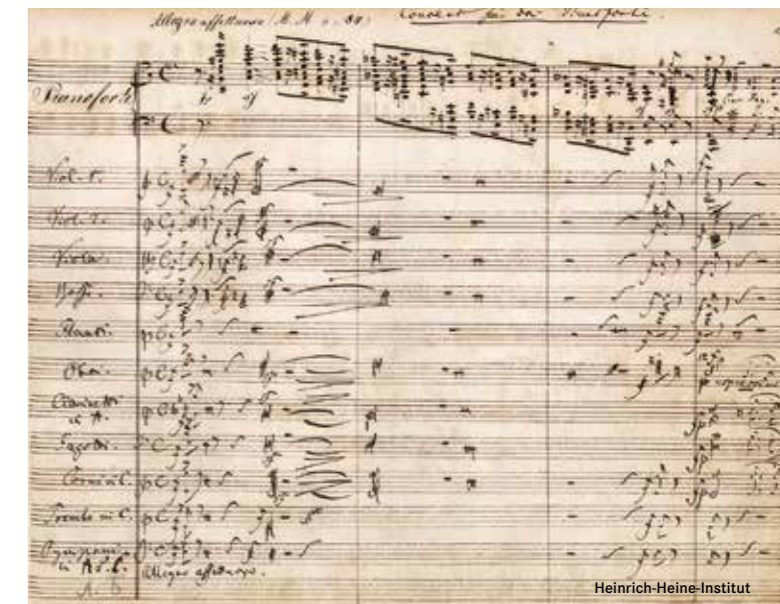 Allegro affettuoso (M. M. = 84)
Concert für das Pianoforte.
Pianoforte
Viol. 1.
Viol. 2.
Viola.
Bassi.
Flauti.
Oboi.
Clarinetti
in A.
Fagotti.
Corni in C.
Trombe in C.
Tympani
in A. E.
Allegro affettuoso.
Heinrich-Heine-Institut